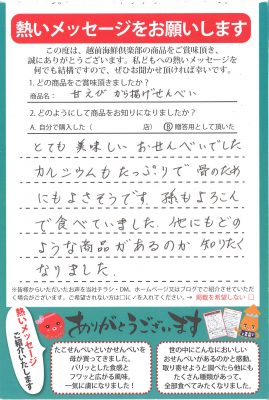 熱いメッセージをお願いします
この度は、越前海鮮倶楽部の商品をご賞味頂き、
誠にありがとうございます。私どもへの熱いメッセージを
何でも結構ですので、ぜひお聞かせ頂ければ幸いです。
1. どの商品をご賞味頂きましたか?
商品名： 甘えび から揚げせんべい
2. どのようにして商品をお知りになりましたか?
A. 自分で購入した（ 店） B 贈答用として頂いた
とても 美味しい おせんべいでした
カルシウムも たっぷりで 骨のため
にもよさそうです. 孫もよろこん
で食べていました. 他にもどの
ような商品があるのか 知りたく
なりました.
※皆様からいただいたお声を当社チラシ・DM、ホームページ又はブログでご紹介させていただ
く場合がございます。ご希望されない方は□に✓を入れてください。→ 掲載を希望しない □
熱いメッセージ
ご紹介いたします
ありがとうございます
たこせんべいといかせんべいを
母が買ってきました。
パリッとした食感と
フワッと広がる風味、
一気に虜になりました!
世の中にこんなにおいしい
おせんべいがあるのかと感動、
取り寄せようと調べたら他にも
たくさん種類があって、
全部食べてみたくなりました。